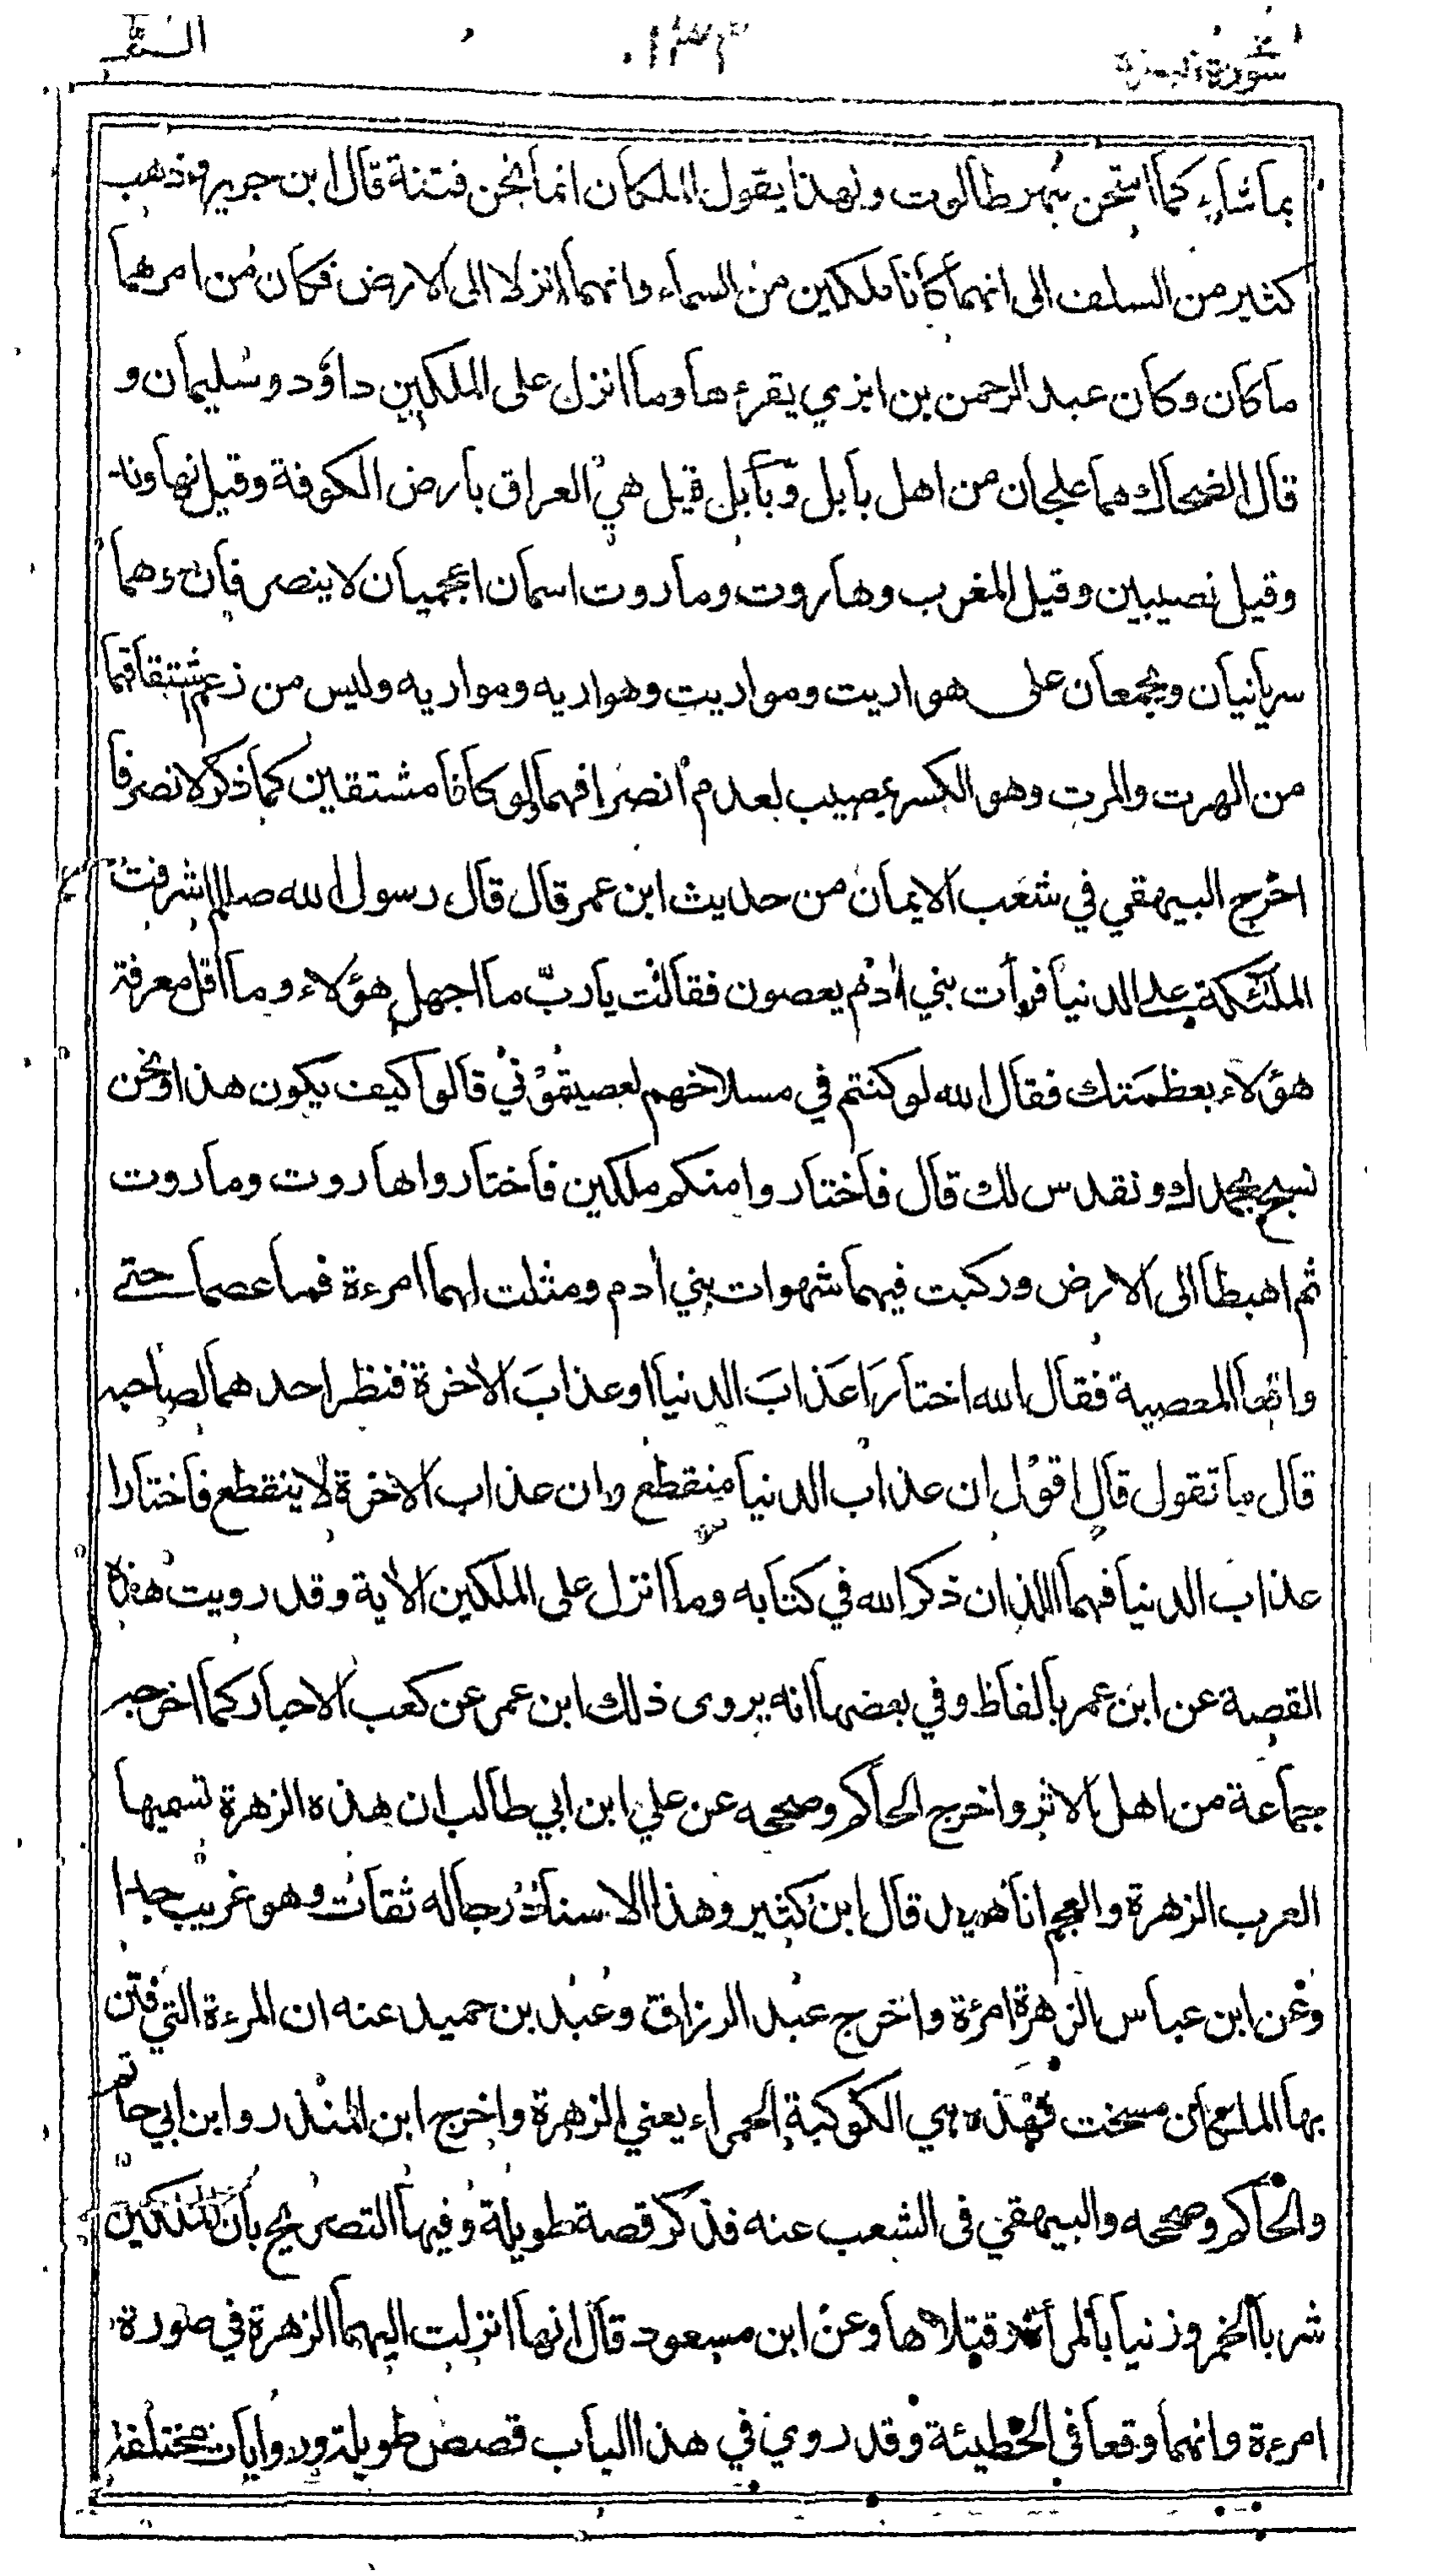 سورة البقرة ١٣٣ السم
بما شاء كما امتحن بنهر طالوت ولهذا يقول الملكان انما نحن فتنة قال ابن جرير وذهب
كثير من السلف الى انهما كانا ملكين من السماء وانهما انزلا الى الارض فكان من امرهما
ما كان وكان عبد الرحمن بن ابزي يقرءها وما انزل على الملكين داؤد وسليمان و
قال الضحاك هما علجان من اهل بابل وبابل قيل هي العراق بارض الكوفة وقيل نهاوند
وقيل نصيبين وقيل المغرب وهاروت وماروت اسمان اعجميان لا ينصرفان وهما
سريانيان ويجمعان على هواريت ومواريت وهواريه ومواريه وليس من زعم اشتقاقهما
من الهرت والمرت وهو الكسر بمصيب لعدم انصرافهما ولو كانا مشتقين كما ذكر لانصرفا
اخرج البيهقي في شعب الايمان من حديث ابن عمر قال قال رسول الله صللم اشرفت
الملئكة على الدنيا فرأت بني اٰدم يعصون فقالت يا ربّ ما اجهل هؤلاء وما اقل معرفة
هؤلاء بعظمتك فقال الله لو كنتم في مسلاخهم لعصيتموني قالوا كيف يكون هذا ونحن
نسبح بحمدك ونقدس لك قال فاختاروا منكم ملكين فاختاروا هاروت وماروت
ثم اهبطا الى الارض وركبت فيهما شهوات بني اٰدم ومثلت لهما امرءة فما عصما حتے
واقعا المعصية فقال الله اختارا عذابَ الدنيا او عذابَ الاٰخرة فنظر احدهما لصاحبه
قال ما تقول قال اقول ان عذاب الدنيا منقطع وان عذاب الاخرة لا ينقطع فاختارا
عذاب الدنيا فهما اللذان ذكر الله في كتابه وما انزل على الملكين الاٰية وقد رويت هذه
القصة عن ابن عمر بالفاظ وفي بعضها انه يروى ذلك ابن عمر عن كعب الاحبار كما اخرجه
جماعة من اهل الاثر واخرج الحاكم وصححه عن علي ابن ابي طالب ان هذه الزهرة تسميها
العرب الزهرة والعجم اناهيد قال ابن كثير وهذا الاسناد رجاله ثقات وهو غريب جدا
وعن ابن عباس الزهرة امرئة واخرج عبد الرزاق وعبد بن حميد عنه ان المرءة التي فتن
بها الملكان مسخت فهذه هي الكوكبة الحمراء يعني الزهرة واخرج ابن المنذر وابن ابي حاتم
والحاكم وصححه والبيهقي فى الشعب عنه فذكر قصة طويلة وفيها التصريح بان الملكين
شربا الخمر وزنيا بالمرأة وقتلاها وعن ابن مسعود قال انها انزلت اليهما الزهرة في صورة
امرءة وانهما وقعا فى الخطيئة وقد روي في هذا الباب قصص طويلة وروايات مختلفة